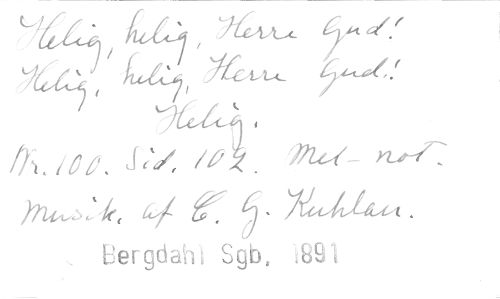 Helig, helig, Herre Gud!
Helig, helig, Herre Gud!
Helig.
Nr. 100. Sid. 102. Mel-not.
Musik. af C. G. Kuhlau.
Bergdahl Sgb. 1891